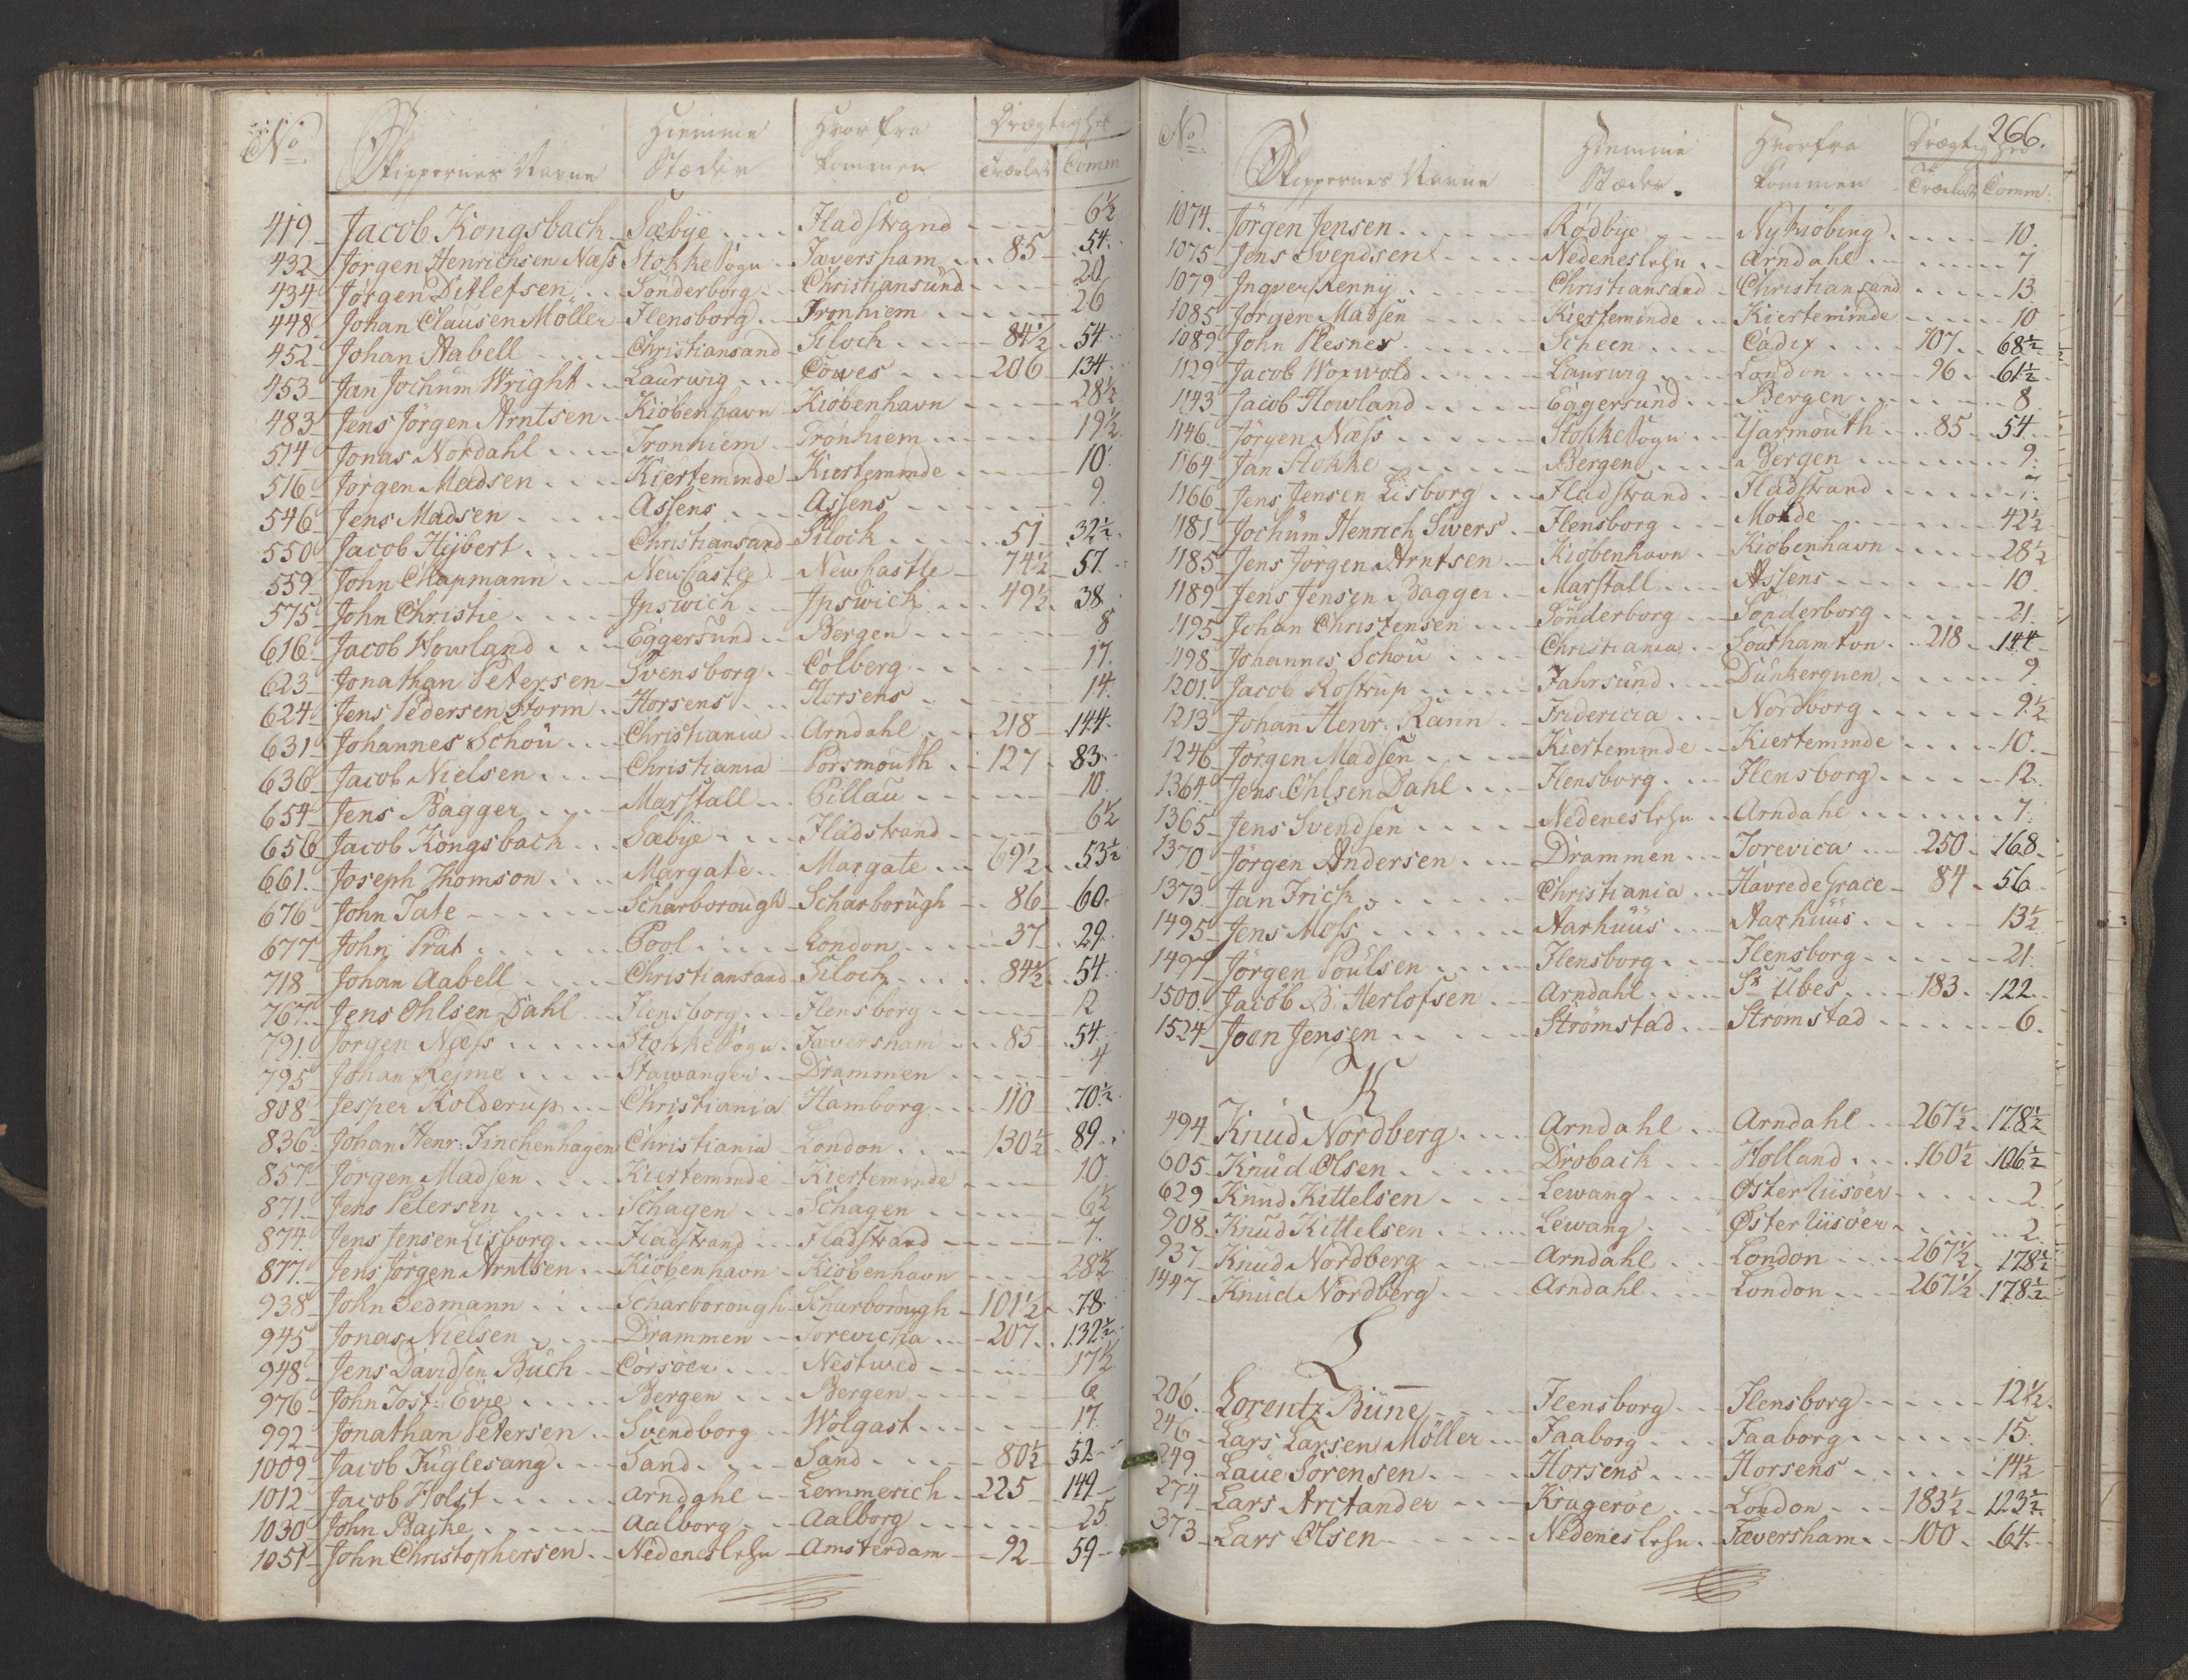 No Skippernes Navne Hiemme Stæder Hvorfra kommen Drægtighed Trælast Comm
419 Jacob Kongsbach Sæbye Fladstrand 6½
432 Jørgen Henrichsen Næss Stokke Sogn Fæversham 85 54
434 Jørgen Ditlefsen Sønderborg Christiansund 20
448 Johan Clausen Möller Flensborg Tronhiem 26
452 Johan Aabell Christiansand Kloch 84½ 54
453 Jan Jochum Wright Laurwig Cowes 206 134
483 Jens Jørgen Arntsen Kiøbenhavn Kiøbenhavn 28½
514 Jonas Nordahl Tronhiem Tronhiem 19½
516 Jørgen Madsen Kierteminde Kierteminde 10
546 Jens Madsen Assens Assens 9
550 Jacob Hijbert Christiansand Kloch 51 32½
559 John Chapmann NewCastle NewCastle 74½ 57
575 John Christie Ipswich Ipswich 49½ 38
616 Jacob Howland Eggersund Bergen 8
623 Jonathan Petersen Svensborg Colberg 17
624 Jens Pedersen Storm Horsens Horsens 14
631 Johannes Schou Christiania Arndahl 218 144
636 Jacob Nielsen Christiania Porsmouth 127 83
654 Jens Bagger Marstall Pillau 10
656 Jacob Kongsbach Sæbye Fladstrand 6½
661 Joseph Thomson Margate Margate 69½ 53½
676 John Tate Scharborough Scharborugh 86 60
677 John Prat Pool London 37 29
718 Johan Aabell Christiansand Kloch 84½ 54
767 Jens Ohlsen Dahl Flensborg Flensborg 12
791 Jørgen Næss Stokke Sogn Fæversham 85 54
795 Johan Rejme Stawanger Drammen 4
808 Jesper Kolderup Christiania Hamborg 110 70½
836 Johan Henr: Finchenhagen Christiania London 130½ 89
857 Jørgen Madsen Kierteminde Kierteminde 10
871 Jens Petersen Schagen Schagen 6½
874 Jens Jensen Lisborg Fladstrand Fladstrand 7
877 Jens Jørgen Arntsen Kiøbenhavn Kiøbenhavn 28½
938 John Tedmann Scharborough Scharborough 101½ 78
945 Jonas Nielsen Drammen Torevicha 207 132½
948 Jens Davidsen Buch Corsøer Nestwed 17½
976 John Jost: Evje Bergen Bergen 6
992 Jonathan Petersen Svendborg Wolgast 17
1009 Jacob Fuglesang Sand Sand 80½ 52
1012 Jacob Holst Arndahl Lemmerich 225 149
1030 John Backe Aalborg Aalborg 25
1051 John Christophersen Nedeneslehn Amsterdam 92 59
266.
No Skippernes Navne Hiemme Stæder Hvorfra kommen Drægtighed Trælast Comm
1074 Jørgen Jensen Rødbye Nykiøbing 10
1075 Jens Svendsen Nedeneslehn Arndahl 7
1079 Ingver Renny Christiansand Christiansand 13
1085 Jørgen Madsen Kierteminde Kierteminde 10
1089 John Plesner Scheen Cadix 107 68½
1129 Jacob Woxwold Laurwig London 96 61½
1143 Jacob Howland Eggersund Bergen 8
1146 Jørgen Næss Stokke Sogn Yarmouth 85 54
1164 Jan Stokke Bergen Bergen 9
1166 Jens Jensen Lisborg Fladstrand Fladstrand 7
1181 Jochum Henrich Sivers Flensborg Molde 42½
1185 Jens Jørgen Arntsen Kiøbenhavn Kiøbenhavn 28½
1189 Jens Jensen Bagger Marstall Assens 10
1195 Johan Christensen Sønderborg Sønderborg 21
1198 Johannes Schou Christiania Southamton 218 144
1201 Jacob Rostrup Fahrsund Dunkerquen 9
1213 Johan Henr. Rann Fridericia Nordborg 9½
1246 Jørgen Madsen Kierteminde Kierteminde 10
1364 Jens Ohlsen Dahl Flensborg Flensborg 12
1365 Jens Svendsen Nedeneslehn Arndahl 7
1370 Jørgen Andersen Drammen Torevica 250 168
1373 Jan Frick Christiania Havre de Grace 84 56
1495 Jens Moss Aarhuus Aarhuus 13½
1497 Jørgen Poulsen Flensborg Flensborg 21
1500 Jacob B. Herlofsen Arndahl St Ubes 183 122
1524 Joen Jensen Strømstad Strømstad 6
K
494 Knud Nordberg Arndahl Arndahl 267½ 178½
605 Knud Olsen Drøbach Holland 160½ 106½
629 Knud Kittelsen Lewang Øster Riisøer 2
908 Knud Kittelsen Lewang Øster Riisøer 2
937 Knud Nordberg Arndahl London 267½ 178½
1447 Knud Nordberg Arndahl London 267½ 178½
L
206 Lorentz Bünne Flensborg Flensborg 12½
246 Lars Larsen Möller Faaborg Faaborg 15
249 Laue Sørensen Horsens Horsens 14½
274 Lars Arctander Kragerøe London 183½ 123½
373 Lars Olsen Nedeneslehn Fæversham 100 64